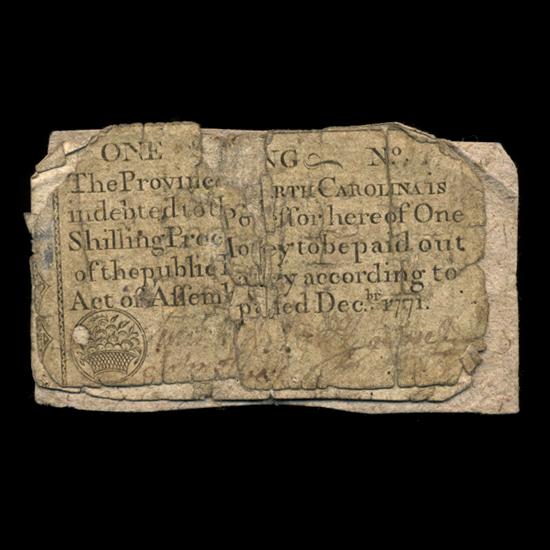 ONE S NG No.
The Province RTH CAROLINA IS
indebted to the Poſſeſſor hereof One
Shilling Proc Money to be paid out
of the publick Treaſury according to
Act of Aſſembly paſſed Decbr. 1771.